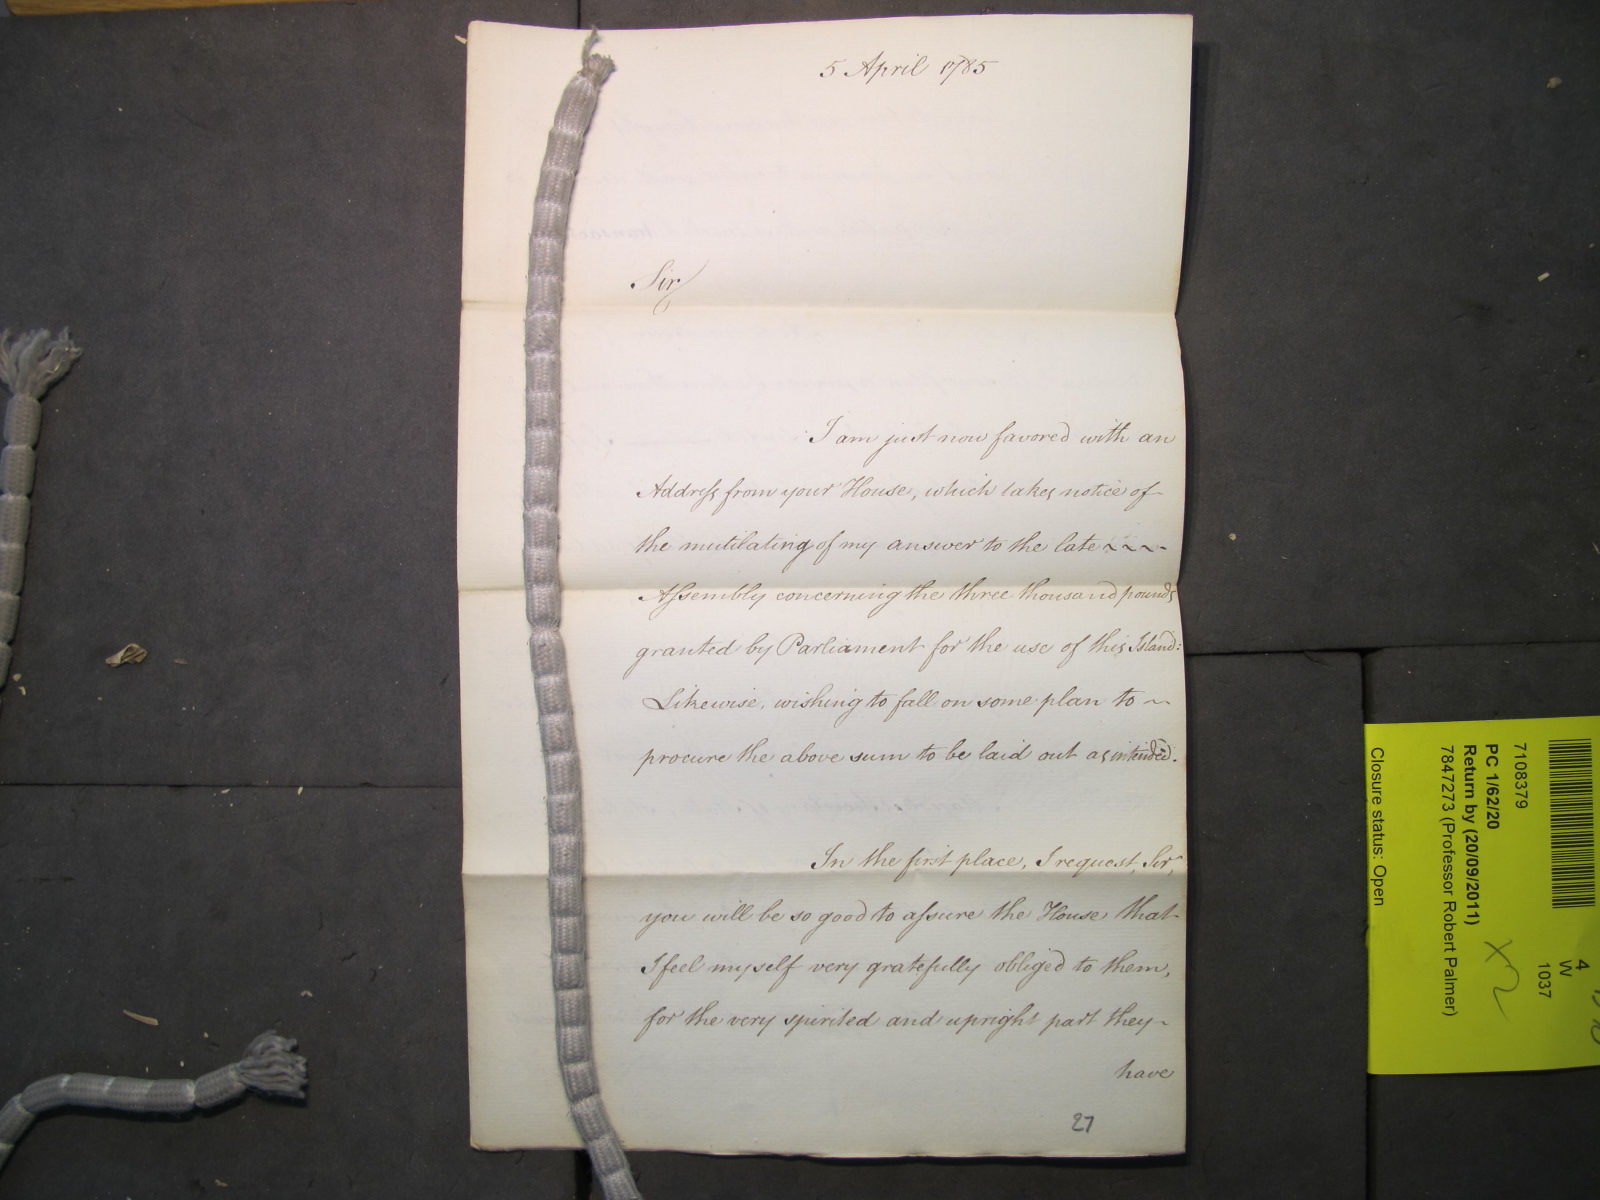 5 April 1785
Sir
I am just now favored with an
Addreſs from your House, which takes notice of
the mutilating of my answer to the late ~~~
Aſsembly concerning the three thousand pounds
granted by Parliament for the use of this Island:
Likewise, wishing to fall on some plan to ~
procure the above sum to be laid out as intended.
In the first place, I request, Sir,
you will be so good to aſsure the House that
I feel myself very gratefully obliged to them,
for the very spirited and upright part they ~
have
27
7108379
PC 1/62/20
Return by (20/09/2011)
7847273 (Professor Robert Palmer)
Closure status: Open
4
W
1037
x2